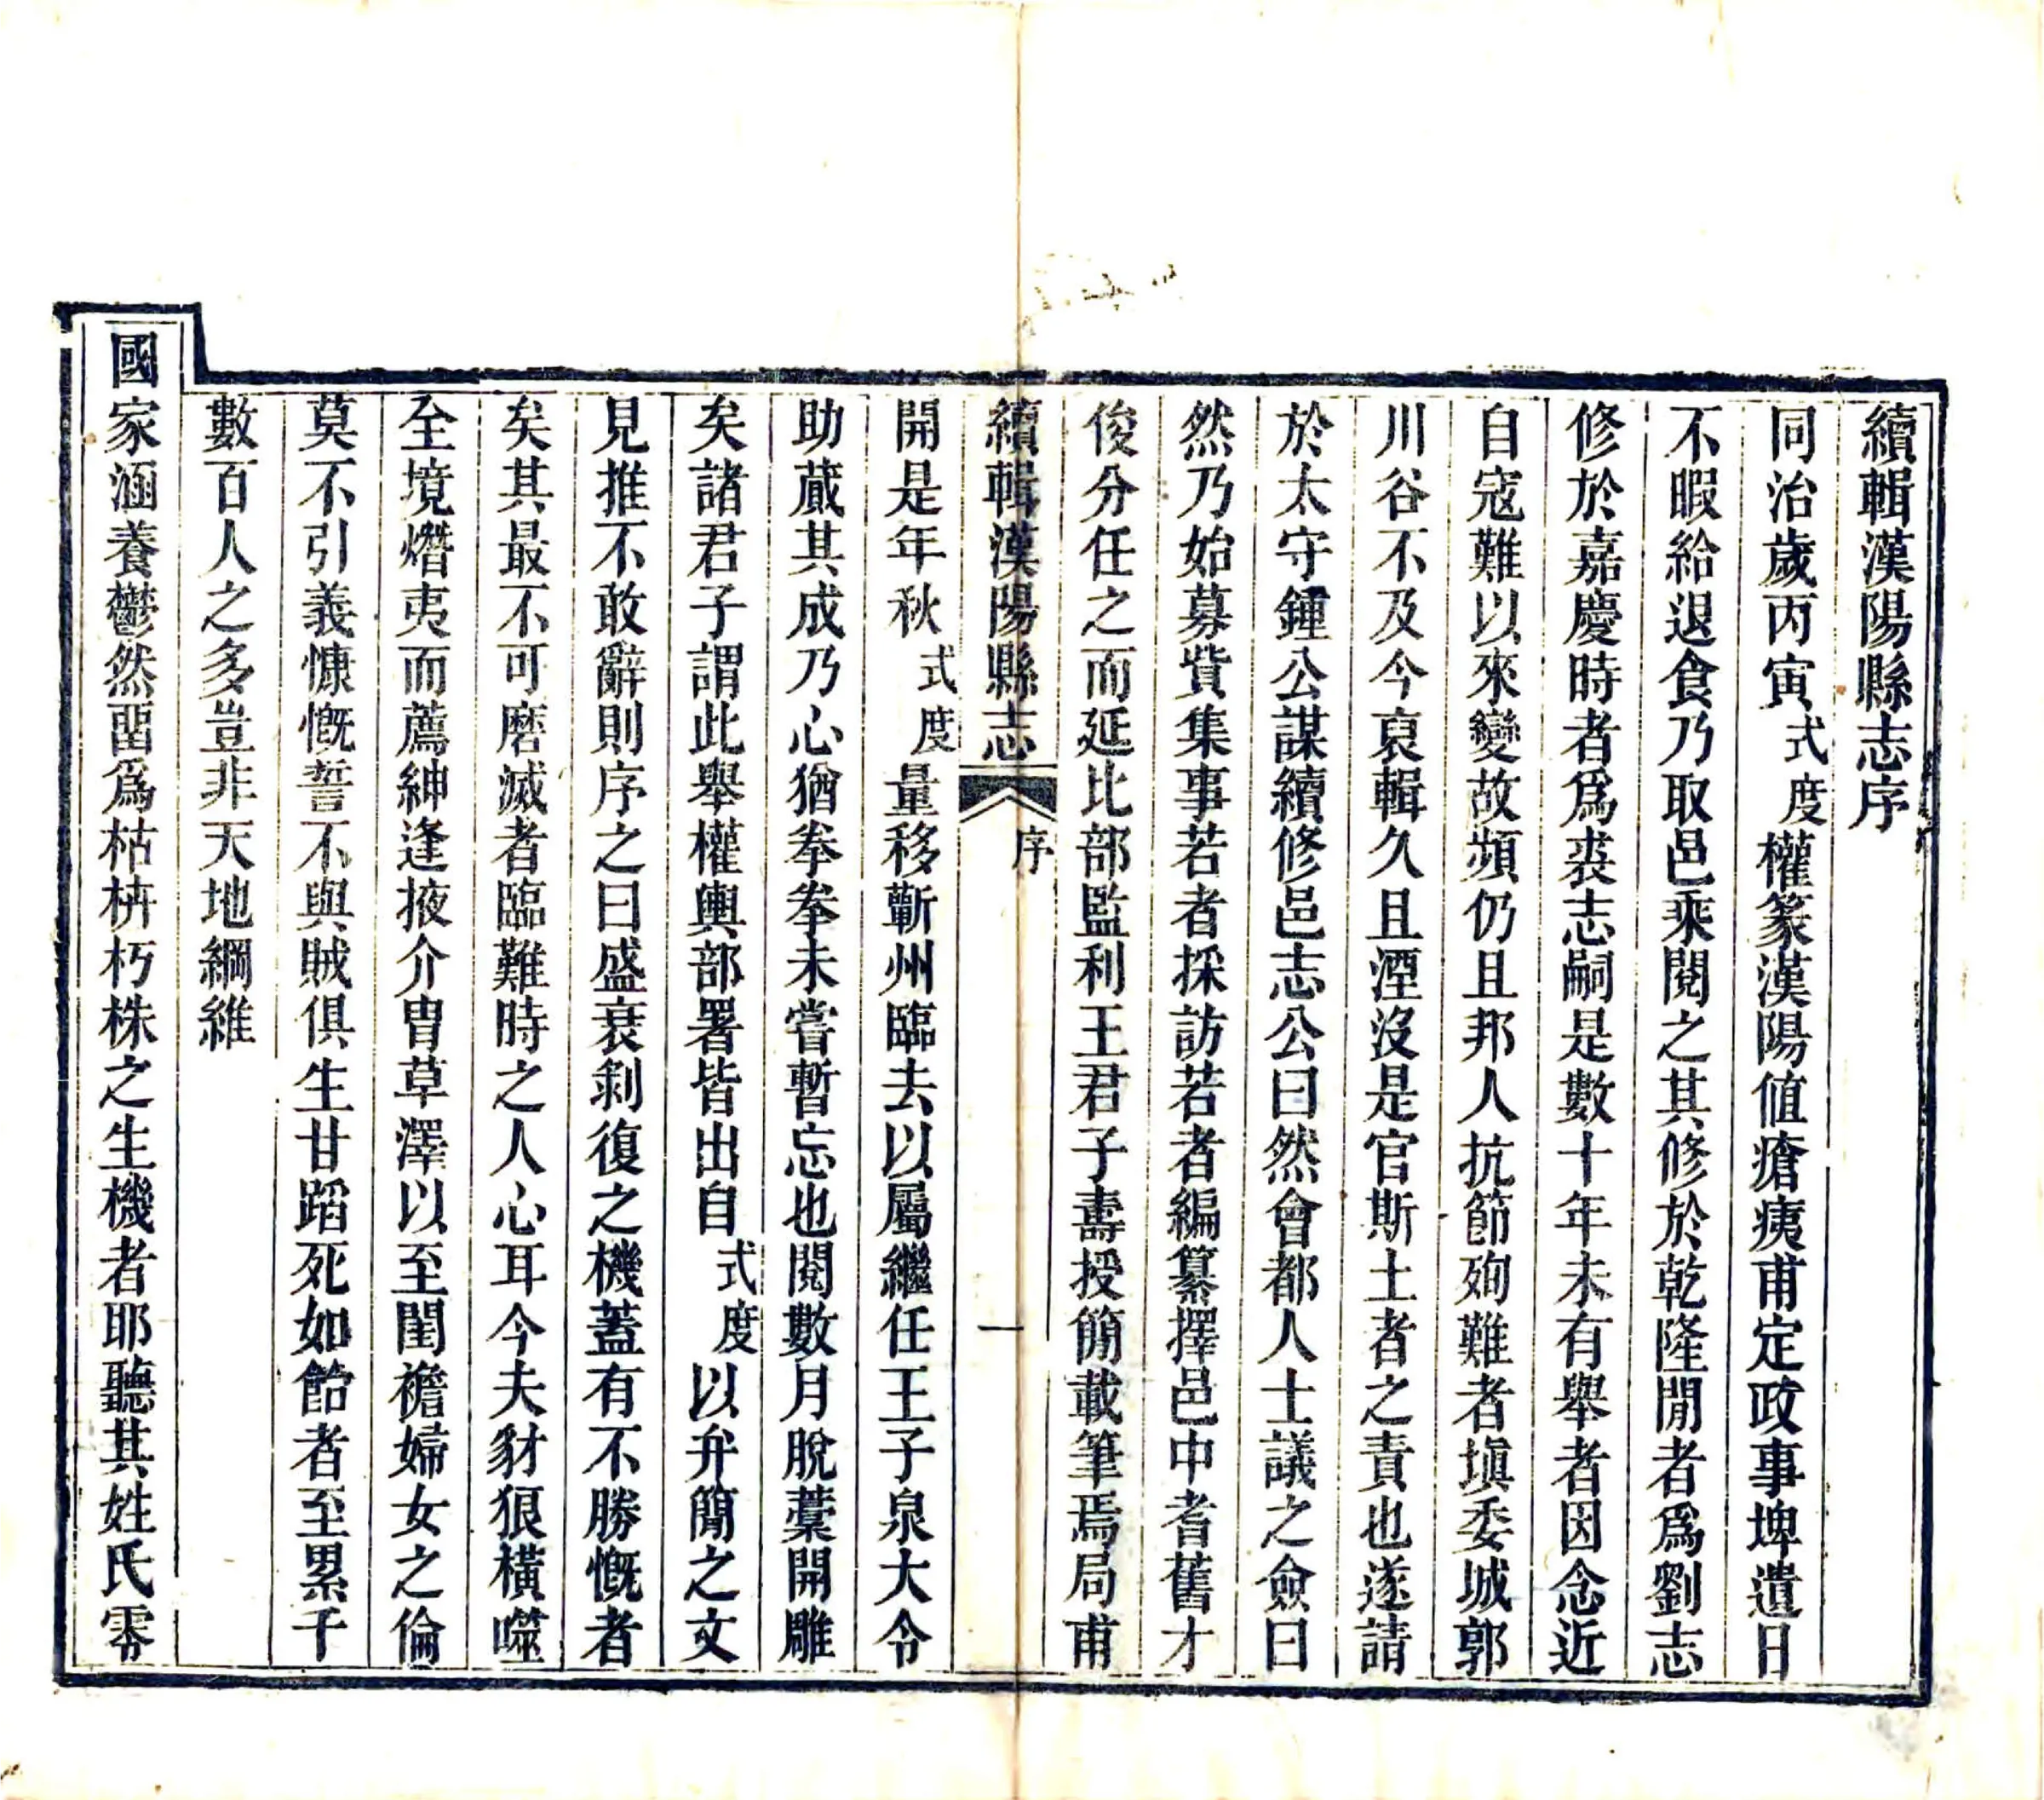 續輯漢陽縣志序
同治歲丙寅式度權篆漢陽值瘡痍甫定政事埤遺日
不暇給退食乃取邑乘閱之其修於乾隆閒者爲劉志
修於嘉慶時者爲裘志嗣是數十年未有舉者因念近
自寇難以來變故頻仍且邦人抗節殉難者塡委城郭
川谷不及今裒輯久且湮沒是官斯土者之責也遂請
於太守鍾公謀續修邑志公曰然會都人士議之僉曰
然乃始募貲集事若者採訪若者編纂擇邑中耆舊才
俊分任之而延比部監利王君子壽授簡載筆焉局甫
續輯漢陽縣志
序
一
開是年秋式度量移蘄州臨去以屬繼任王子泉大令
助蕆其成乃心猶拳拳未嘗暫忘也閱數月脫藁開雕
矣諸君子謂此舉權輿部署皆出自式度以弁簡之文
見推不敢辭則序之曰盛衰剝復之機蓋有不勝慨者
矣其最不可磨滅者臨難時之人心耳今夫豺狼橫噬
至境熸夷而薦紳逢掖介冑草澤以至閨襜婦女之倫
莫不引義慷慨誓不與賊俱生甘蹈死如飴者至累千
數百人之多豈非天地綱維
國家涵養鬱然畱爲枯枿朽株之生機者耶聽其姓氏零